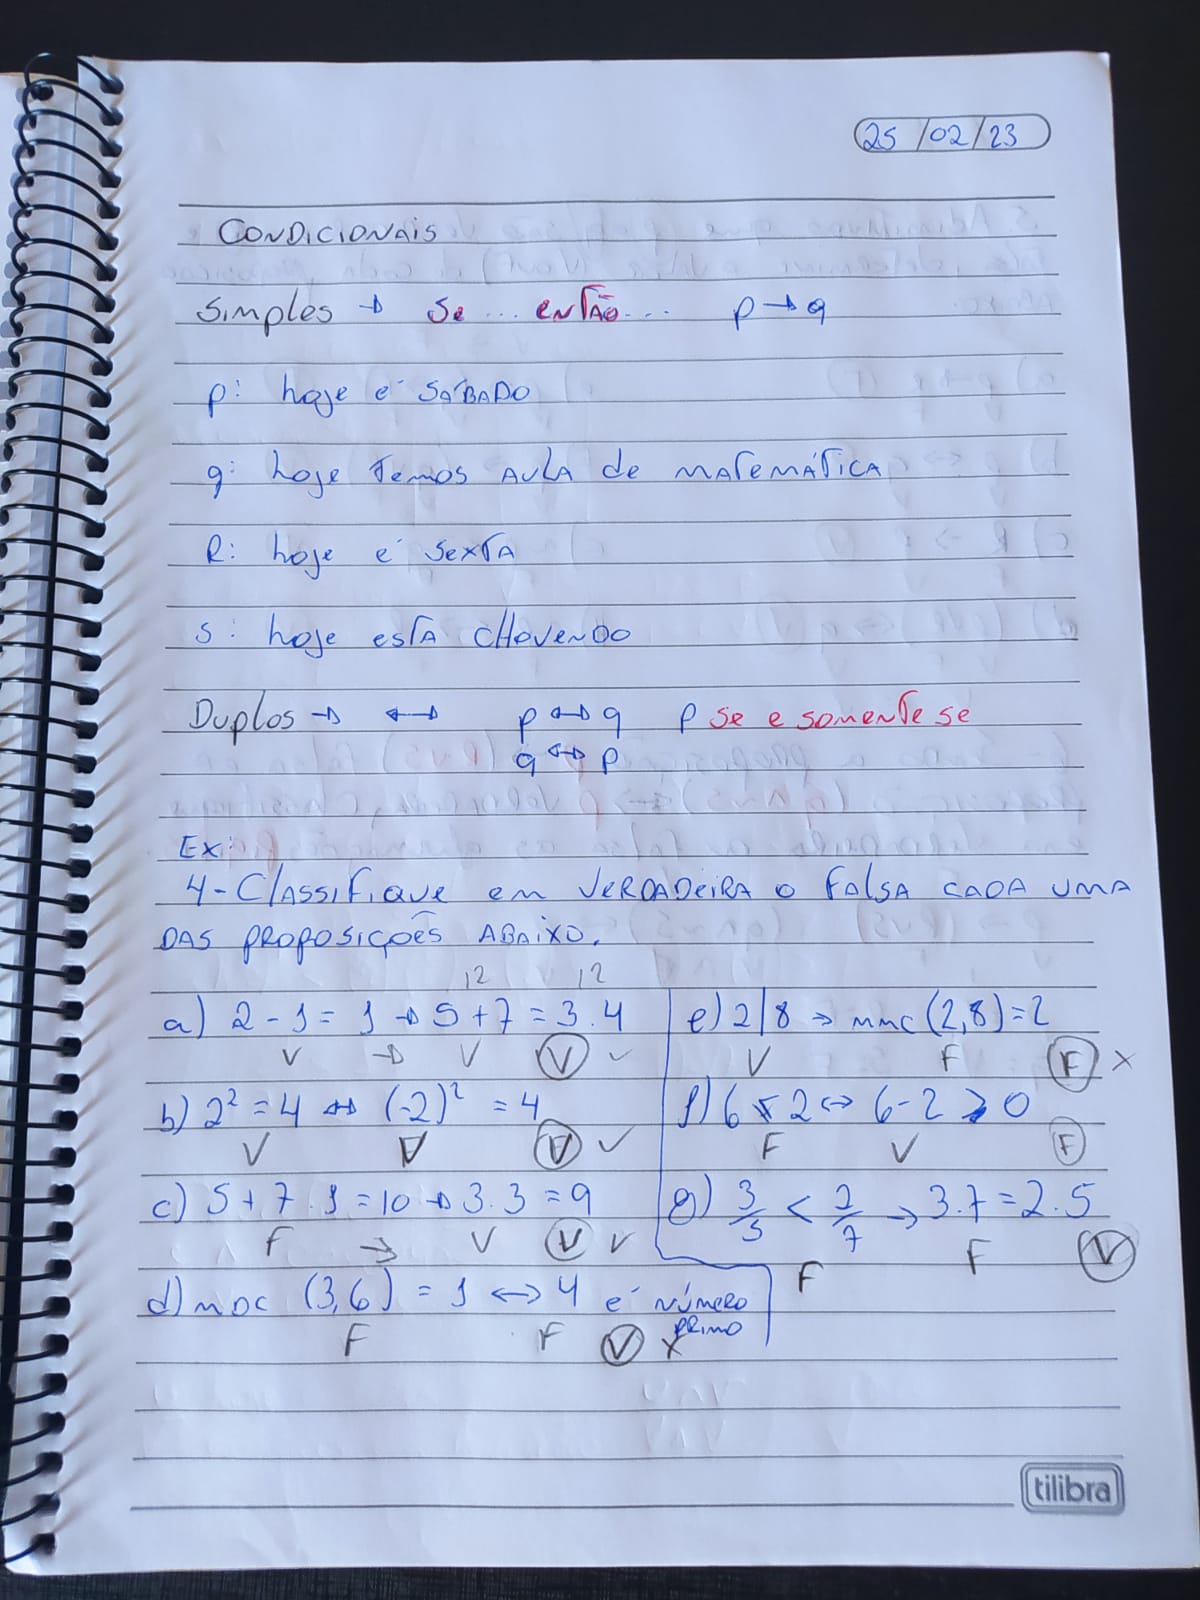 25/02/23
CONDICIONAIS
Simples → Se ... ENTÃO... p → q
p: hoje é SÁBADO
q: hoje Temos AULA de MATEMÁTICA
R: hoje é SEXTA
S: hoje está CHOVENDO
Duplos → ↔ p ↔ q p se e somente se
q ↔ p
Ex:
4-Classifique em VERDADEIRA o FALSA CADA UMA
DAS PROPOSIÇÕES ABAIXO.
12 12
a) 2 - 1 = 1 → 5 + 7 = 3.4
V → V V ✓
b) 2² = 4 ↔ (-2)² = 4
V V V ✓
c) 5 + 7 . 1 = 10 → 3.3 = 9
F → V V ✓
d) MDC (3,6) = 1 ↔ 4 é NÚMERO PRIMO
F F V x
e) 2|8 → MMC (2,8) = 2
V F F x
f) 6 ≤ 2 ↔ 6 - 2 ≥ 0
F V F
g) 3/5 < 2/7 → 3.7 = 2.5
F F V
tilibra